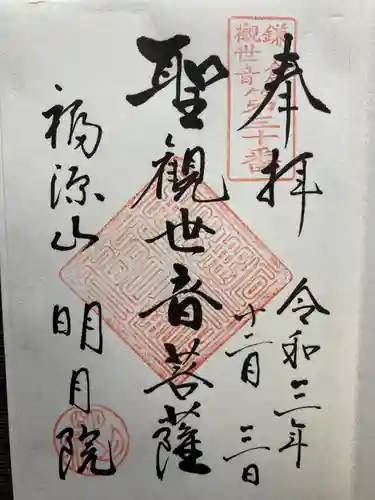 奉拝
鎌倉
觀世音第三十番
令和三年
十二月三日
聖観世音菩薩
福源山
明月院